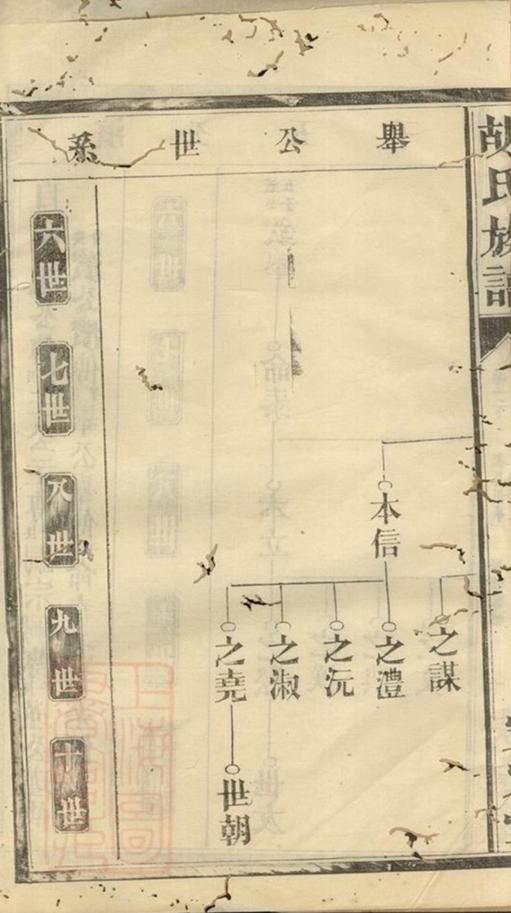 胡氏族譜
舉公世系
之謀
本信
之澧
之沅
之淑
之堯
世朝
六世
七世
八世
九世
十世